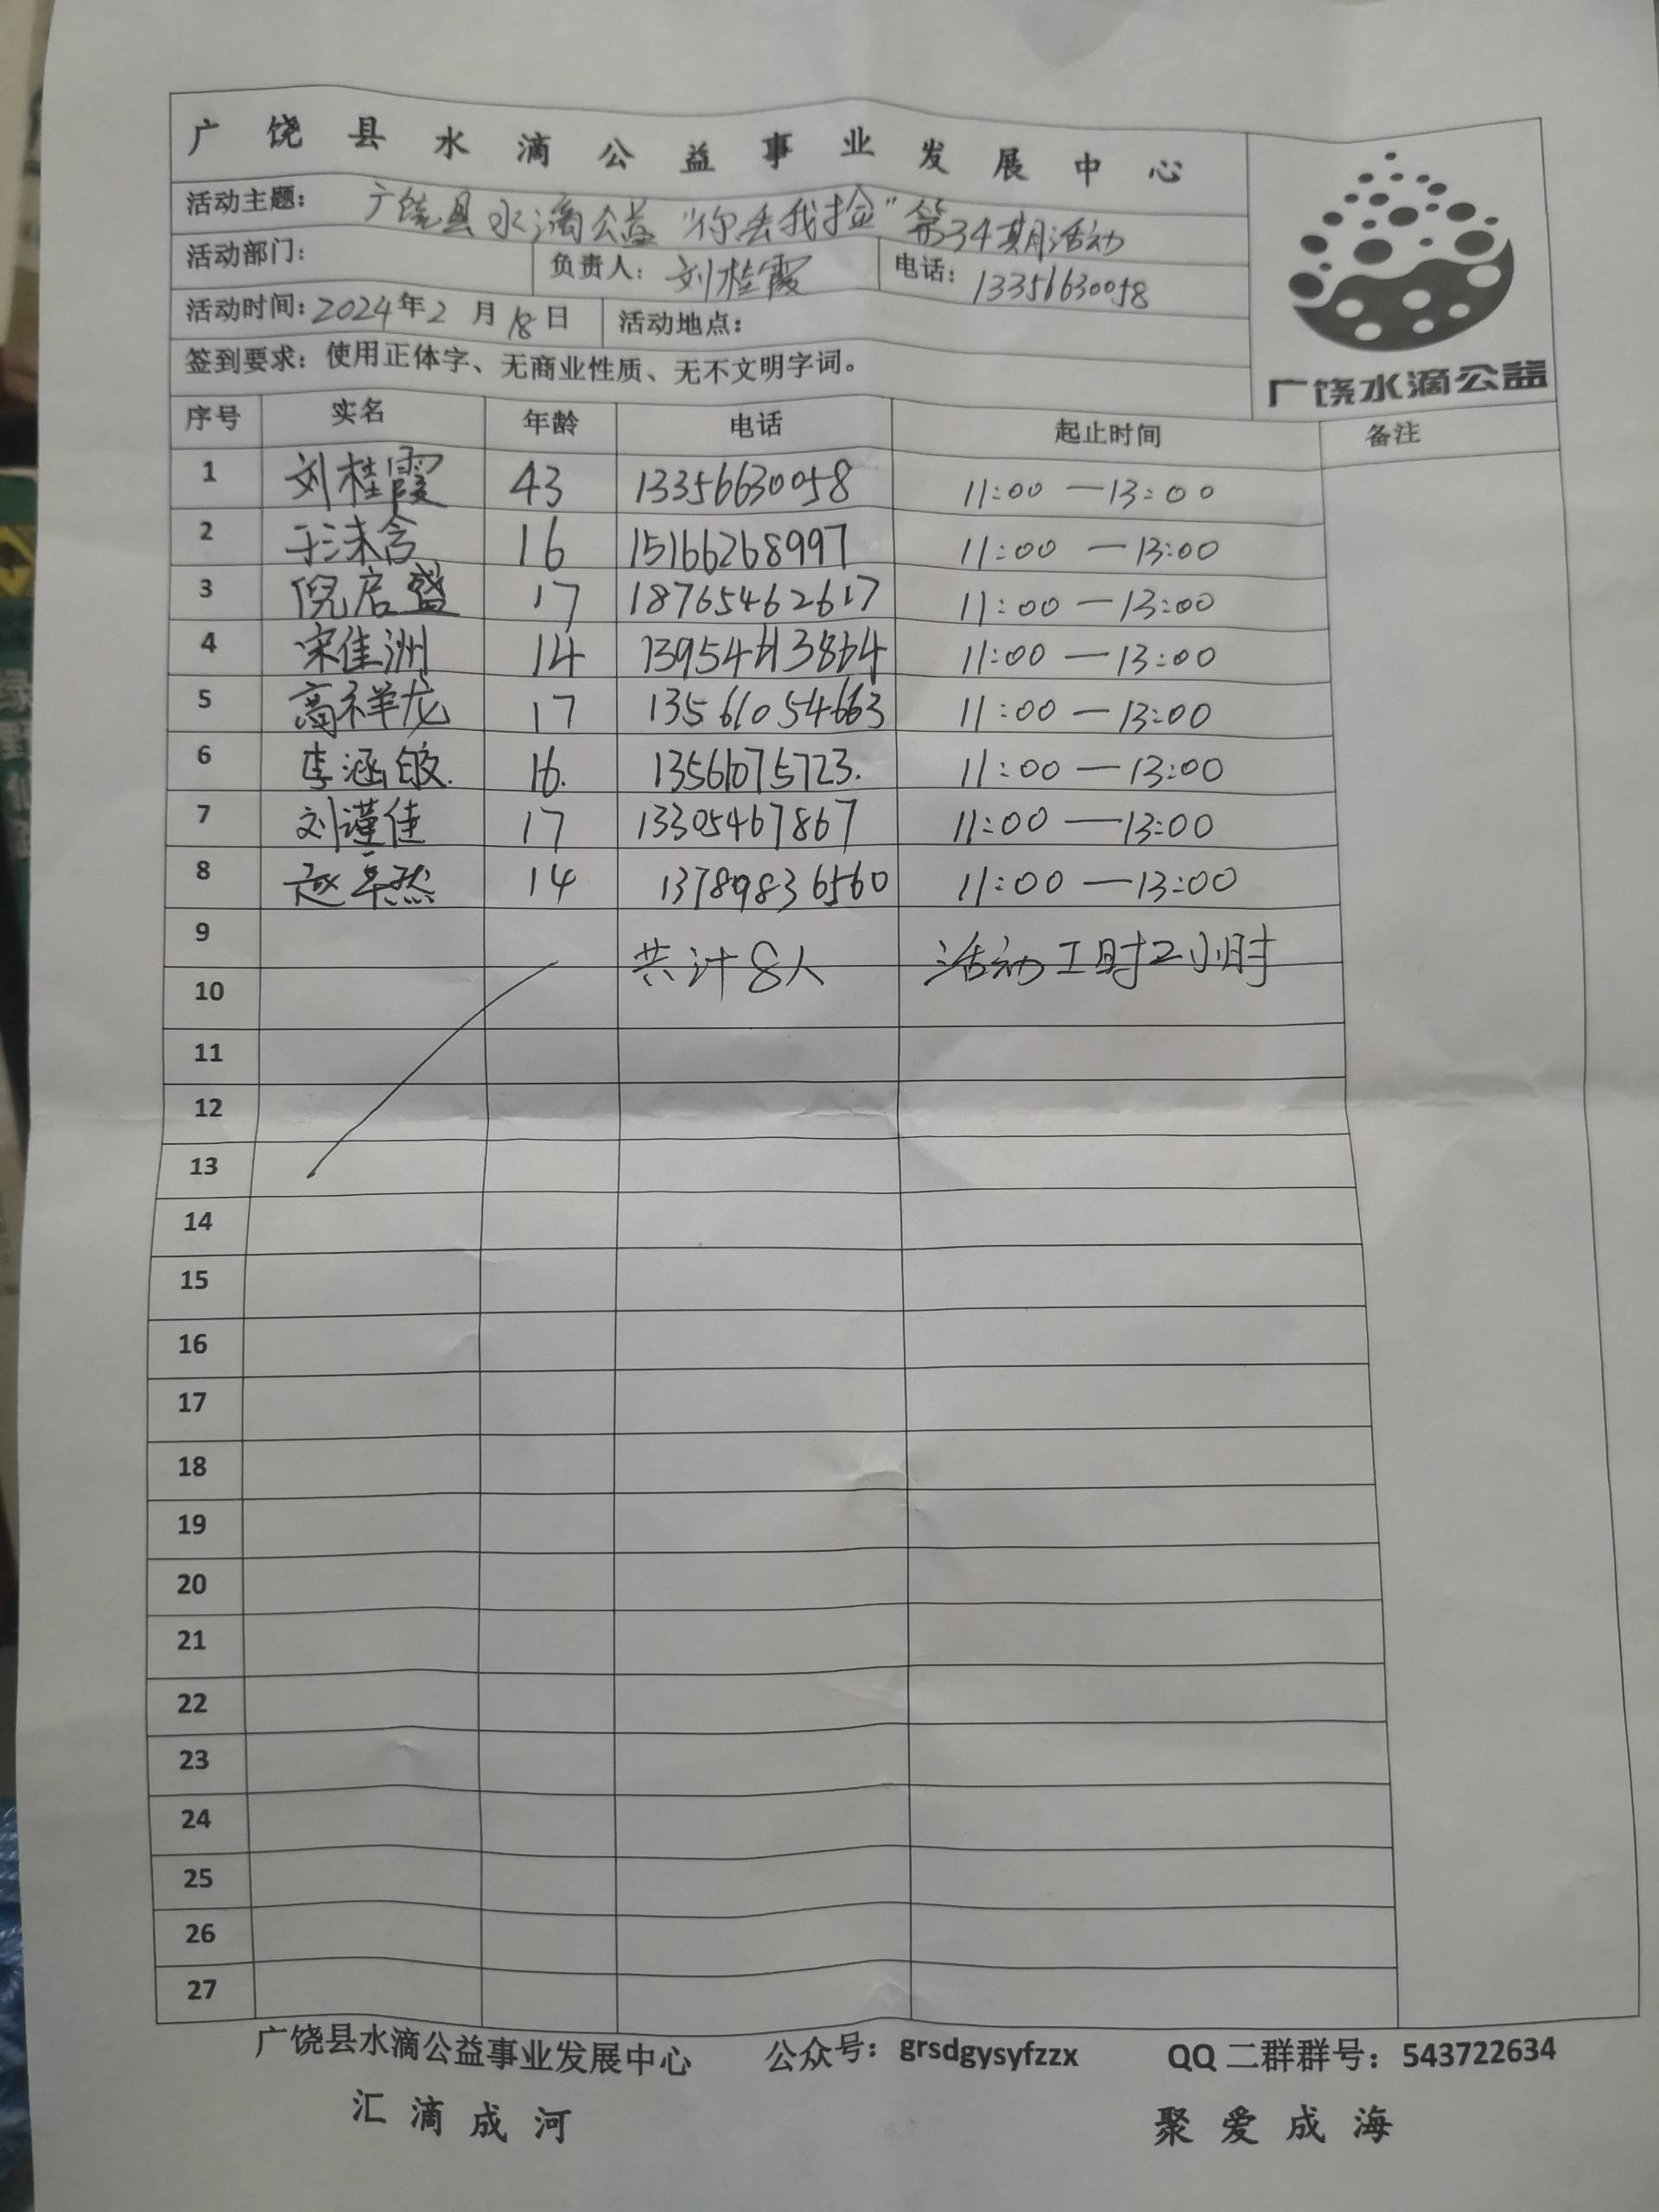 广饶县水滴公益事业发展中心
活动主题：广饶县水滴公益“你丢我捡”第34期活动
活动部门： 负责人：刘桂霞 电话：13356630058
活动时间：2024年2月18日 活动地点：
签到要求：使用正体字、无商业性质、无不文明字词。
广饶水滴公益
序号 实名 年龄 电话 起止时间 备注
1 刘桂霞 43 13356630058 11:00—13:00
2 16 15166268997 11:00—13:00
3 倪启盛 17 18765462617 11:00—13:00
4 宋佳洲 14 11:00—13:00
5 高祥龙 17 13561054663 11:00—13:00
6 16. 13561075723. 11:00—13:00
7 刘谨佳 17 13305467867 11:00—13:00
8 赵卓然 14 13789836560 11:00—13:00
9
共计8人 活动工时2小时
10
11
12
13
14
15
16
17
18
19
20
21
22
23
24
25
26
27
广饶县水滴公益事业发展中心 公众号：grsdgysyfzzx QQ二群群号：543722634
汇滴成河 聚爱成海